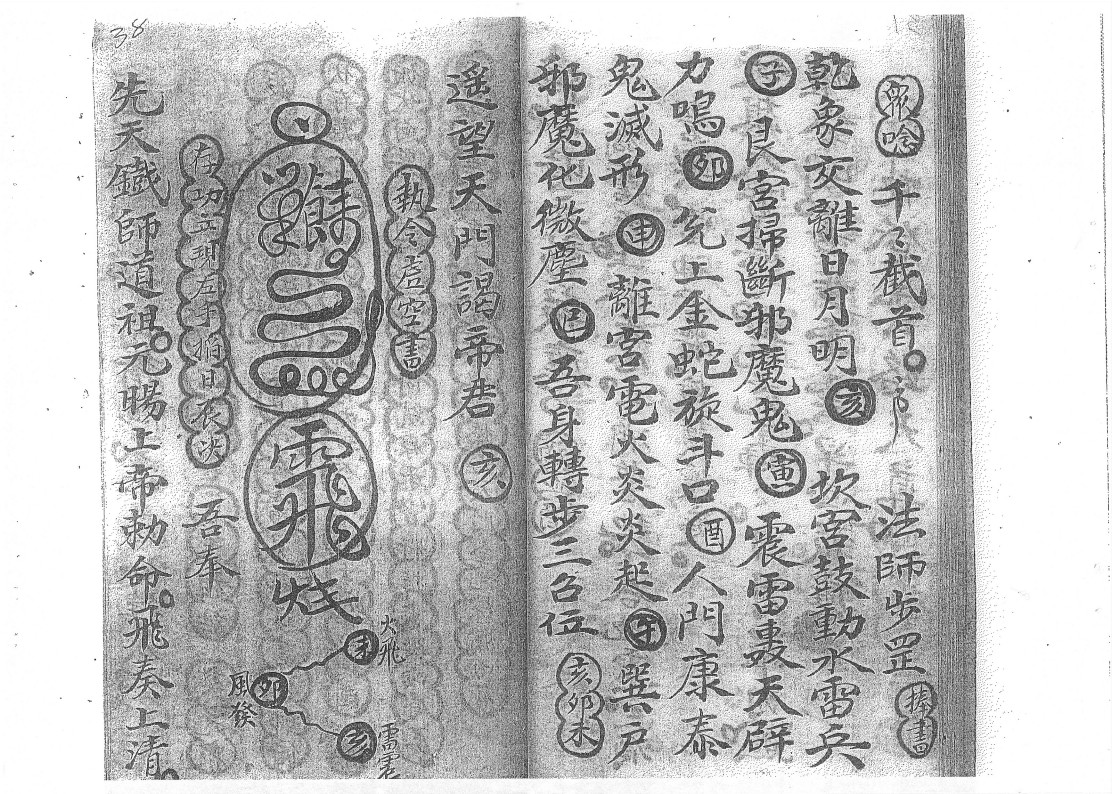 眾唸 千々截首。 法師步罡 捧書
乾象交離日月明 亥 坎宮鼓動水雷兵
子 艮宮掃斷邪魔鬼 寅 震雷轟天霹
力鳴 卯 兌上金蛇旋斗口 酉 人門康泰
鬼滅形 申 離宮電火炎炎起 午 巽戶
邪魔化微塵 巳 吾身轉步三台位 亥卯未
遥望天門謁帝君 亥
執令虛空畫
飛
火飛
未
卯
風發
亥
存 立 左手掐 吾奉
先天鐵師道祖。元暘上帝勅命。飛奏上清。
38